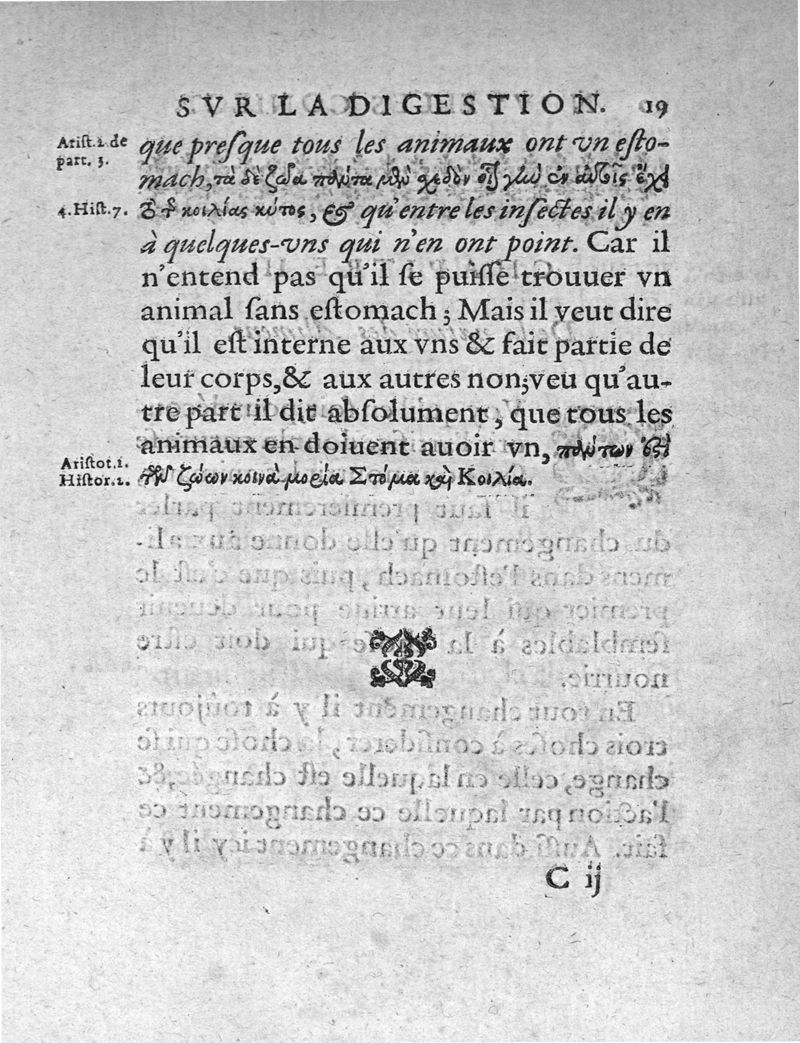 SVR LA DIGESTION. 19
Arist. 2. de
part. 3.
que preſque tous les animaux ont vn eſto-
mach, τὰ δὲ ζῶα
4. Hiſt. 7.
κοιλίας κύτος, & qu'entre les inſectes il y en
à quelques-vns qui n'en ont point. Car il
n'entend pas qu'il ſe puiſſe trouuer vn
animal ſans eſtomach; Mais il veut dire
qu'il eſt interne aux vns & fait partie de
leur corps, & aux autres non; veu qu'au-
tre part il dit abſolument, que tous les
animaux en doiuent auoir vn, πάντων
Ariſtot. 1.
Hiſtor. 2.
ζώων κοινὰ μορία Στόμα καὶ Κοιλία.
C ij